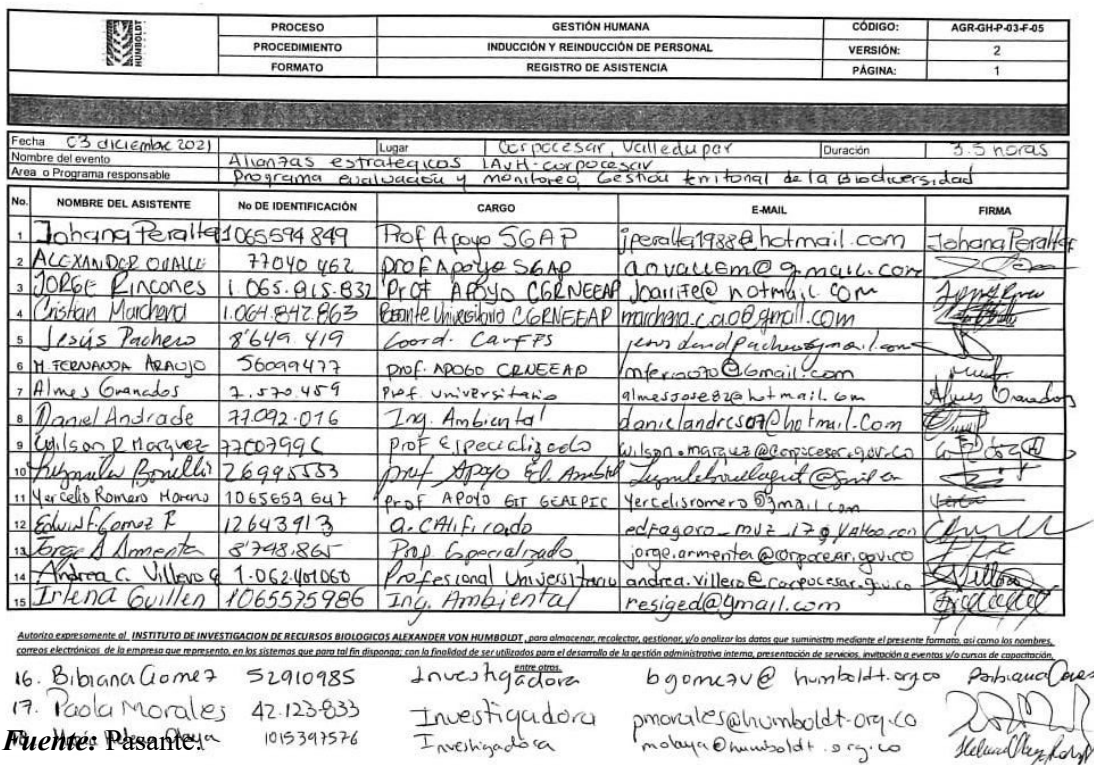 HUMBOLDT
PROCESO GESTIÓN HUMANA CÓDIGO: AGR-GH-P-03-F-05
PROCEDIMIENTO INDUCCIÓN Y REINDUCCIÓN DE PERSONAL VERSIÓN: 2
FORMATO REGISTRO DE ASISTENCIA PÁGINA: 1
Fecha 03 diciembre 2021 Lugar Corpocesar, Valledupar Duración 3.5 horas
Nombre del evento Alianzas estrategicas IAvH-corpocesar
Area o Programa responsable Programa evaluación y monitoreo, Gestión territorial de la Biodiversidad
No. NOMBRE DEL ASISTENTE No DE IDENTIFICACIÓN CARGO E-MAIL FIRMA
1 Johana Peralta 1065594849 Prof Apoyo SGAP jperalta1988@hotmail.com Johana Peralta
2 ALEXANDER OVALLE 77040462 prof Apoyo SGAP aovallem@gmail.com
3 JORGE Rincones 1.065.815.832 Prof APOYO CGRNEEAP @hotmail.com
4 Cristian Marchena 1.064.842.863 Pasante Universitario CGRNEEAP
5 Jesús Pacheco 8'649.419 Coord.
6 M. FERNANDA ARAUJO 56099477 prof. APOGO CRNEEAP
7 Almes Granados 7.570.459 Prof. universitario almesjose82@hotmail.com Almes Granados
8 Daniel Andrade 77.092.016 Ing. Ambiental danielandres07@hotmail.com
9 Wilson R Marquez 77007996 Prof Especializado wilson.marquez@corpocesar.gov.co
10 26995553 prof Apoyo
11 Yercelis Romero Moreno 1065659647 Prof APOYO GIT GEAIPIC yercelisromero@gmail.com
12 Edwin F. Gomez R 12643913 a. CAlificado
13 Jorge A Armenta 8'748.865 Prof Especializado jorge.armenta@corpocesar.gov.co
14 Andrea C. Villero G 1.062.401060 Profesional Universitario andrea.villero@corpocesar.gov.co
15 Irlena Guillen 1065575986 Ing. Ambiental resiged@gmail.com
Autorizo expresamente al INSTITUTO DE INVESTIGACION DE RECURSOS BIOLOGICOS ALEXANDER VON HUMBOLDT, para almacenar, recolectar, gestionar, y/o analizar los datos que suministro mediante el presente formato, así como los nombres,
correos electrónicos de la empresa que represento, en los sistemas que para tal fin disponga; con la finalidad de ser utilizados para el desarrollo de la gestión administrativa interna, presentación de servicios, invitación a eventos y/o cursos de capacitación,
entre otros.
16. Bibiana Gomez 52910985 Investigadora bgomezv@humboldt.org.co
17. Paola Morales 42.123.833 Investigadora pmorales@humboldt.org.co
1015397576 Investigadora molaya@humboldt.org.co
Fuente: Pasante.